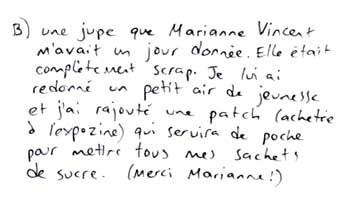 B) une jupe que Marianne Vincent
m'avait un jour donnée. Elle était
complètement scrap. Je lui ai
redonné un petit air de jeunesse
et j'ai rajouté une patch (achetée
à l'expozine) qui servira de poche
pour mettre tous mes sachets
de sucre. (Merci Marianne!)